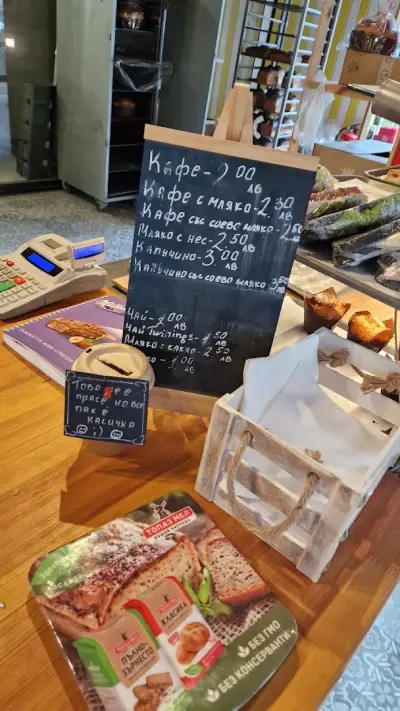 Кафе - 2 00 лв
Кафе с мляко - 2. 30 лв
Кафе със соево мляко - 2 50 лв
Мляко с нес - 2. 50 лв
Капучино - 3 00 лв
Капучино със соево мляко 3 50 лв
Чай - 1.00 лв
Чай Twinings - 1 50 лв
Мляко с какао - 2 50
1.00 лв
Това не е
прасе, но все
пак е
касичка
;)
ТОПАЗ МЕЛ
ПЪЛНО-
ЗЪРНЕСТО
КЛАСИКА
БЕЗ ГМО
БЕЗ КОНСЕРВАНТИ